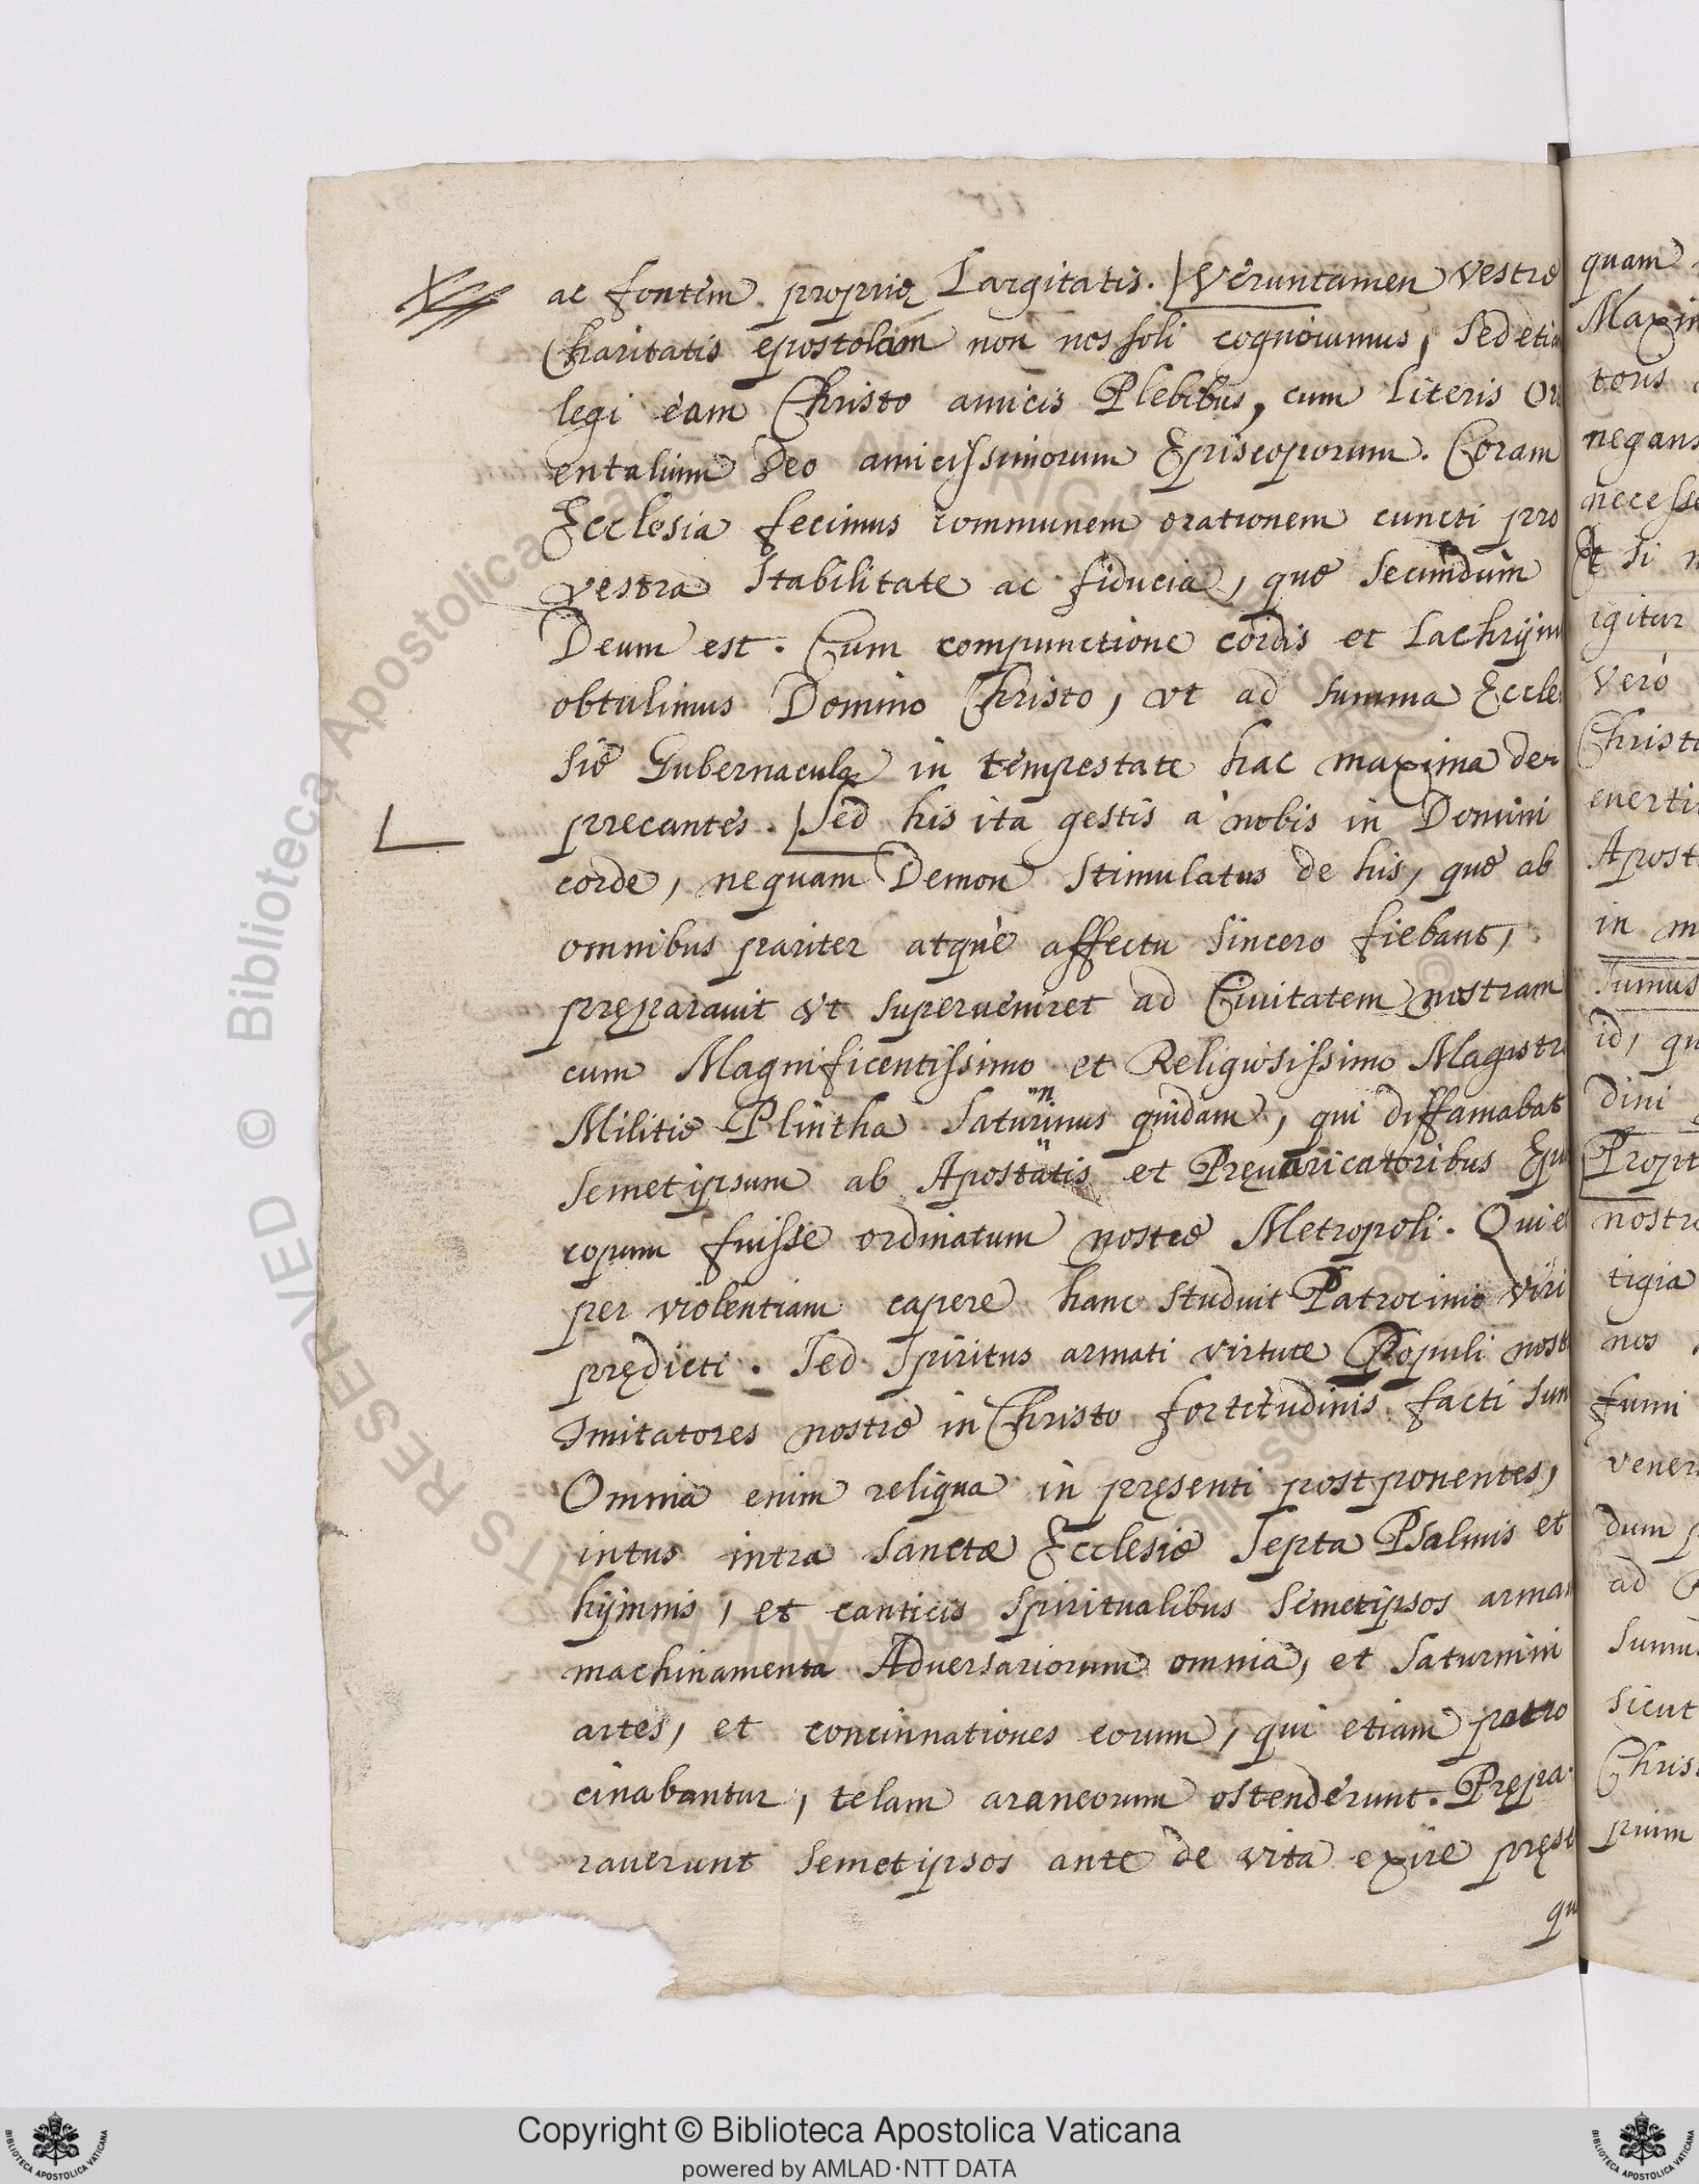 ac fontem proprię Largitatis. Veruntamen Vestrę
Charitatis epostolam non nos soli cognouimus, sed etia
legi eam Christo amicis Plebibus, cum literis Ori
entalium Deo amicissimorum Episcoporum. Coram
Ecclesia fecimus communem orationem cuncti pro
vestra stabilitate ac fiducia, quę secundum
Deum est. Cum compunctione cordis et Lachrym
obtulimus Domino Christo, vt ad summa Eccle
się Gubernacula in tempestate hac maxima de-
precantes. Sed his ita gestis à nobis in Domini
corde, nequam Demon stimulatus de his, quę ab
omnibus pariter atquè affectu sincero fiebant,
pręparauit vt superueniret ad Ciuitatem nostram
cum Magnificentissimo et Religiosissimo Magistr
Militię Plintha Saturinus quidam, qui diffamabat
n
semetipsum ab Apostatis et Pręuaricatoribus Epis
copum fuisse ordinatum nostrę Metropoli. Qui e
per violentiam capere hanc studuit Patrocinio viri
prędicti. Sed Spiritus armati virtute Populi nost
Imitatores nostrę in Christo fortitudinis facti sun
Omnia enim reliqua in pręsenti postponentes,
intus intra sanctæ Ecclesię septa Psalmis et
hymnis, et canticis spiritualibus semetipsos arman
machinamenta Aduersariorum omnia, et Saturnini
artes, et concinnationes eorum, qui etiam patro
cinabantur, telam araneorum ostenderunt. Prępa-
rauerunt semetipsos ante de vita exire pręst
qu
quam
Maxim
toris
negans
necesse
Et si n
igitur
Verò
Christ
euerti
Apost
in m
sumus
id, qu
dini
Propt
nostr
tigia
nos
sumi
vener
dum p
ad
sumus
sicut
Chris
puim
Copyright © Biblioteca Apostolica Vaticana
powered by AMLAD·NTT DATA